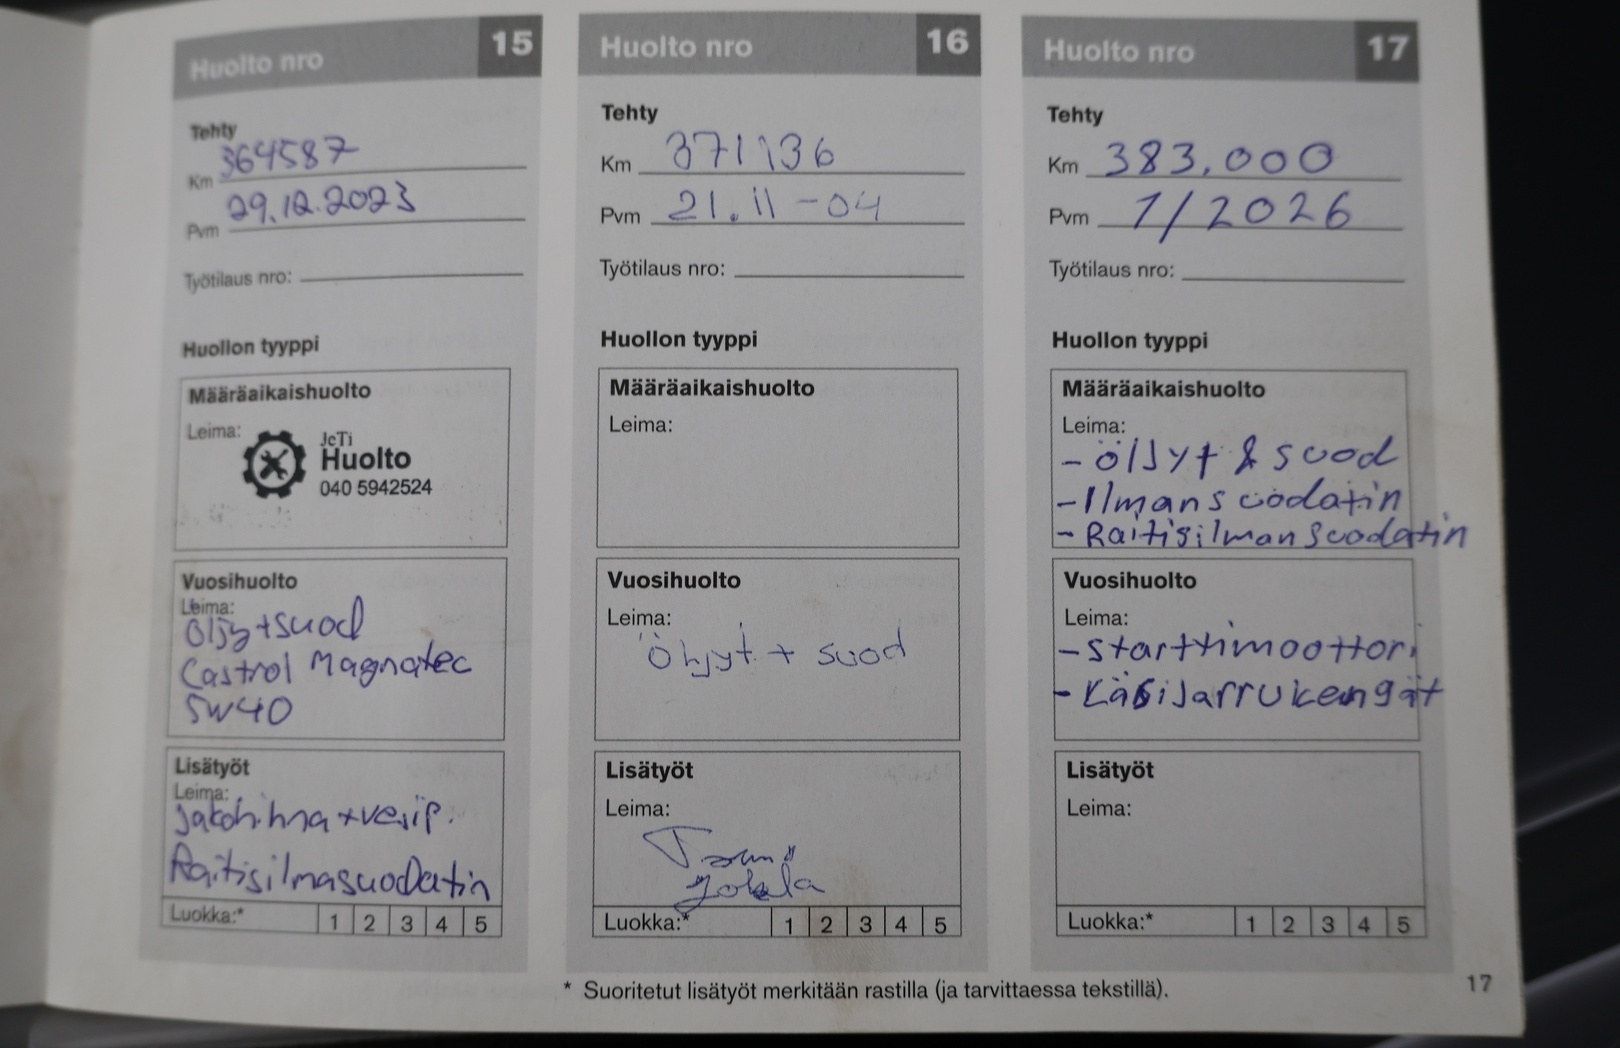 Huolto nro 15
Tehty
Km 364587
Pvm 29.12.2023
Työtilaus nro:
Huollon tyyppi
Määräaikaishuolto
Leima:
JeTi
Huolto
040 5942524
Vuosihuolto
Leima:
Öljy+suod
Castrol Magnatec
5W40
Lisätyöt
Leima:
jakohihna+vesip.
Raitisilmasuodatin
Luokka:* 1 2 3 4 5
Huolto nro 16
Tehty
Km 371136
Pvm 21.11-04
Työtilaus nro:
Huollon tyyppi
Määräaikaishuolto
Leima:
Vuosihuolto
Leima:
Öljyt + suod
Lisätyöt
Leima:
Luokka:* 1 2 3 4 5
Huolto nro 17
Tehty
Km 383.000
Pvm 1/2026
Työtilaus nro:
Huollon tyyppi
Määräaikaishuolto
Leima:
- öljyt & suod
- Ilmansuodatin
- Raitisilmansuodatin
Vuosihuolto
Leima:
- starttimoottori
- Käsijarrukengät
Lisätyöt
Leima:
Luokka:* 1 2 3 4 5
* Suoritetut lisätyöt merkitään rastilla (ja tarvittaessa tekstillä).
17